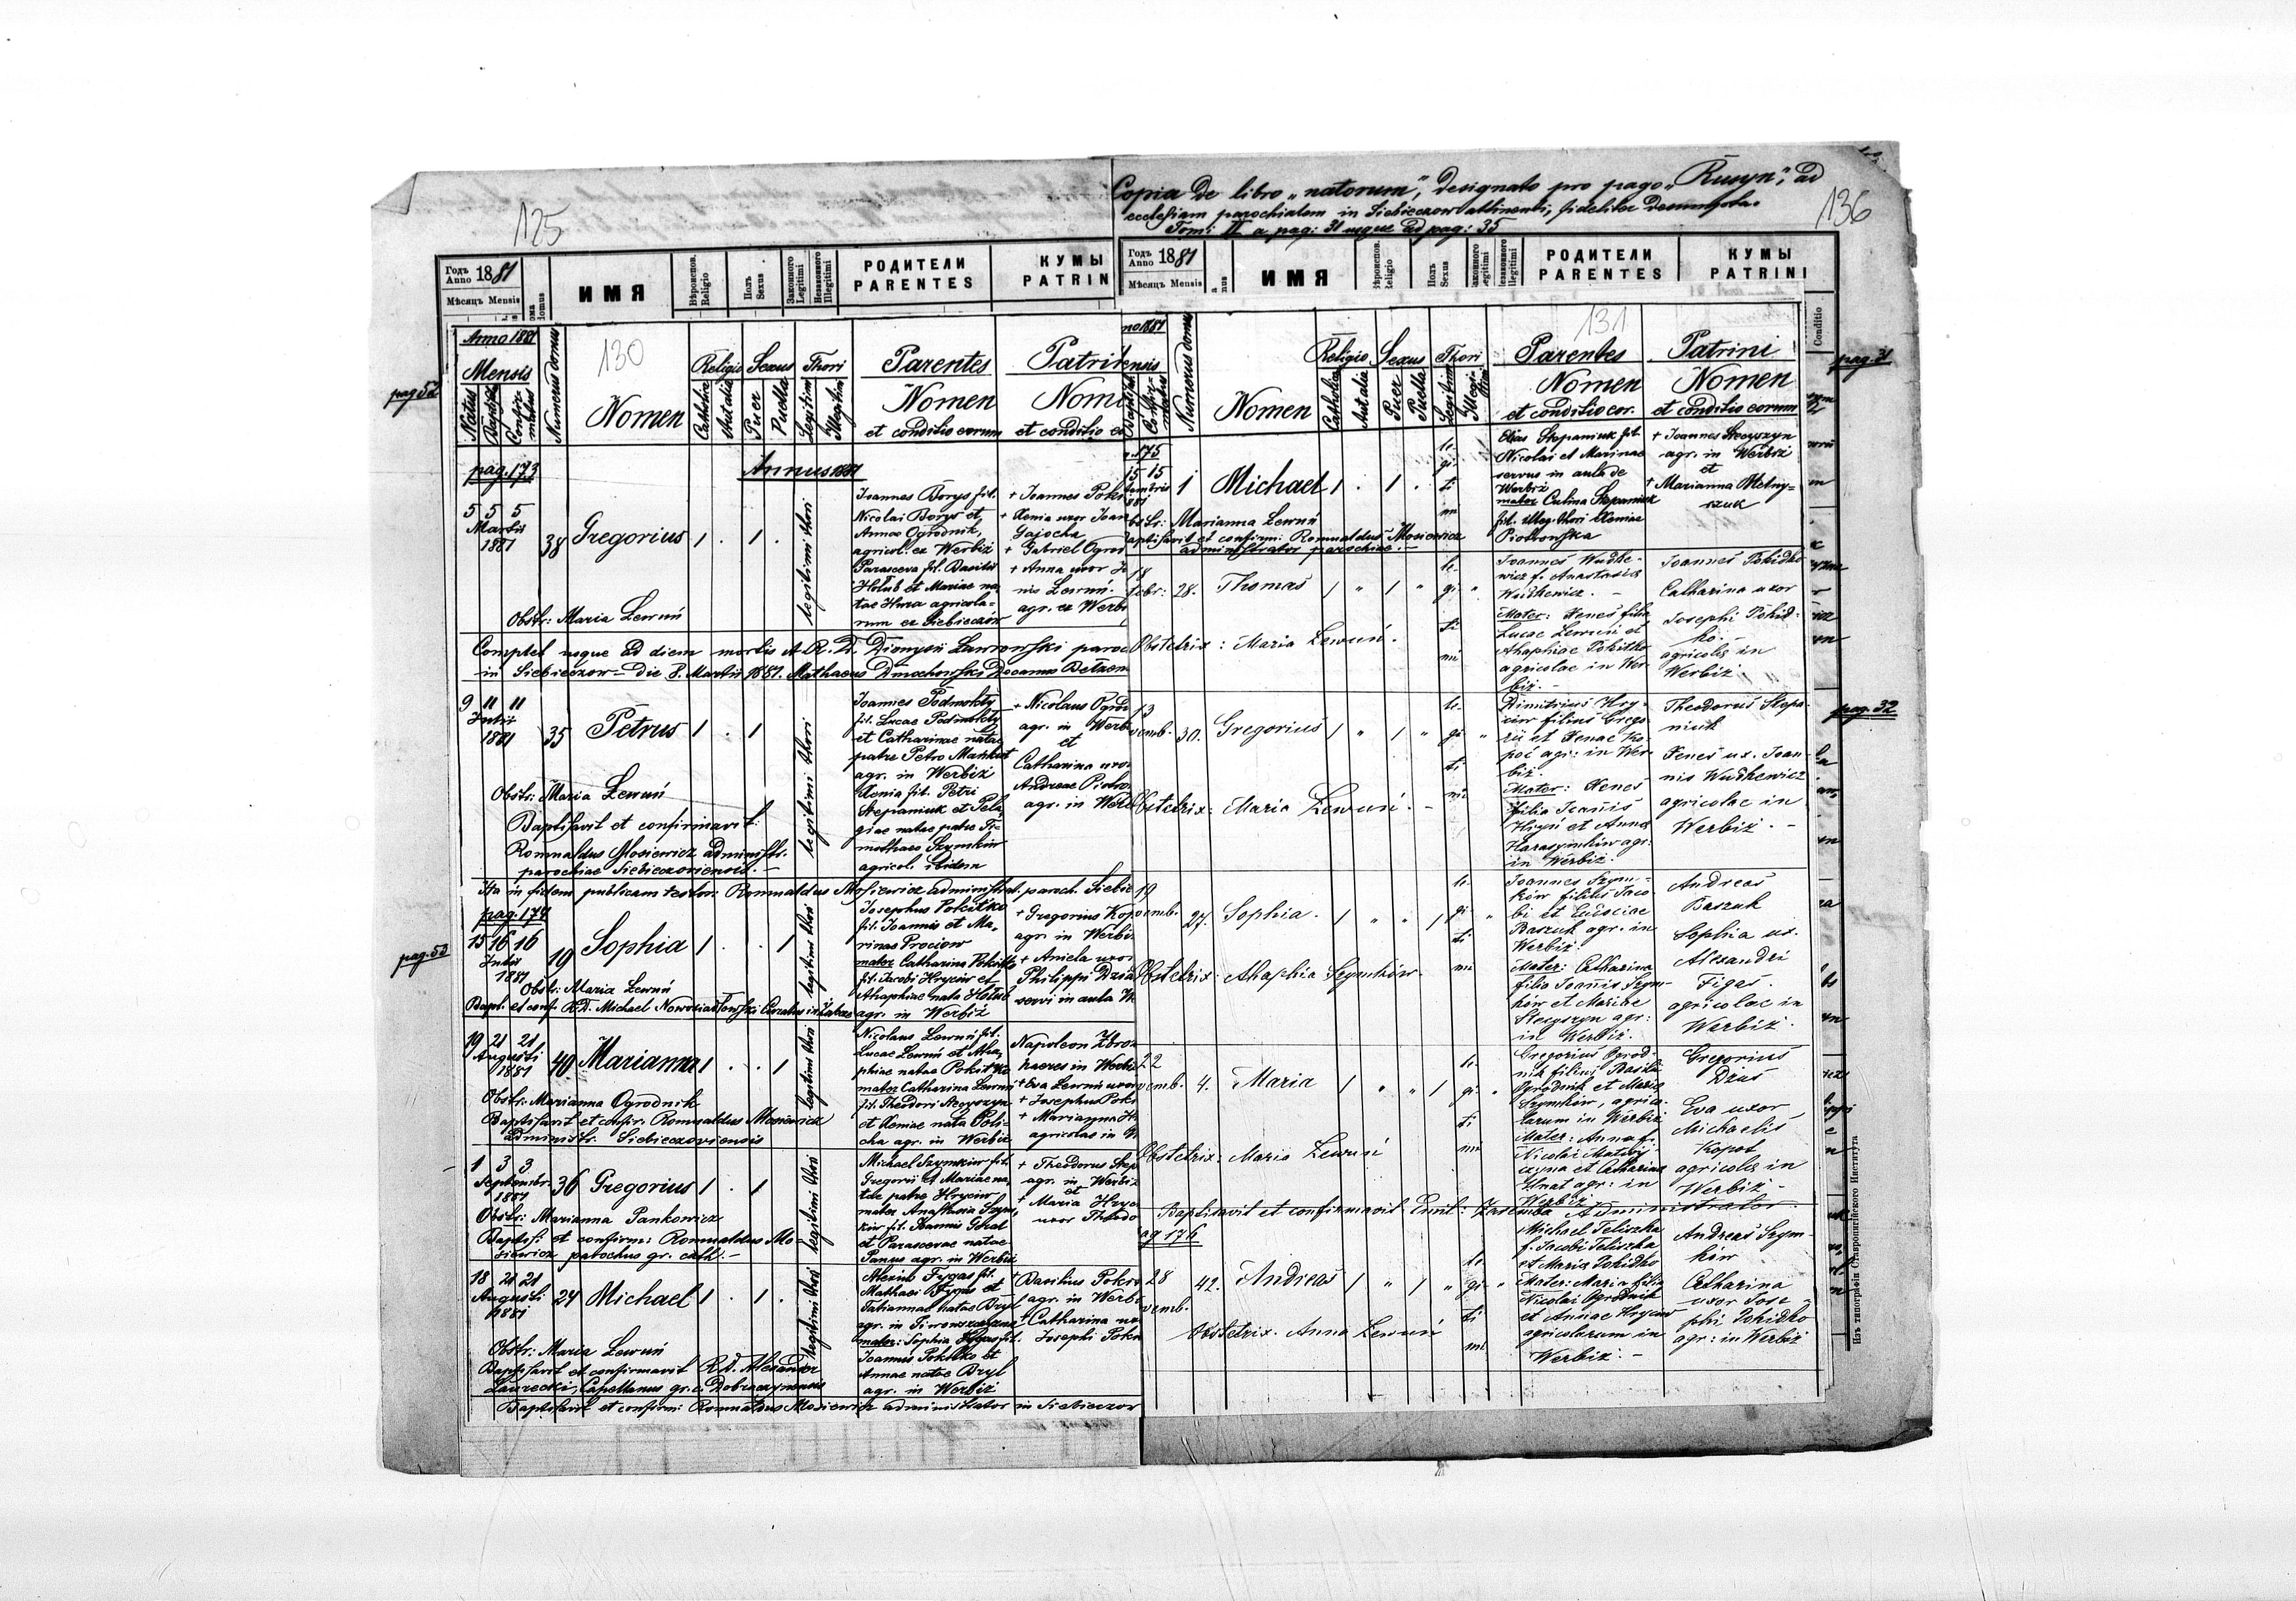 Copia de libro „natorum", designato pro pago „Rusyn", ad
ecclesiam parochialem in Siebieczow attinenti, fideliter
Tom: II a pag: 31 usque ad pag: 35
125
136
Годъ Anno 1881
Мѣсяцъ Mensis
ИМЯ
Вѣроиспов. Religio
Полъ Sexus
Законного Legitimi
Незаконного Illegitimi
РОДИТЕЛИ
PARENTES
КУМЫ
PATRIN
Anno 1881
Mensis
Natus
Numerus domus
130
Nomen
Religio
Catholica
Aut alia
Sexus
Puer
Puella
Thori
Legitimi
Illegitimi
Parentes
Nomen
et conditio eorum
Patrin
Nom
et conditio
pag. 52
pag. 173
Annus 1881
5 5 5
Martii
1881
38
Gregorius
1 . 1 .
legitimi thori
Joannes Borys fil.
Nicolai Borys et
Annae Ogrodnik,
agricol. ex Werbiż
Parasceva fil. Basilii
Hołub et Mariae na-
tae Hura agricola-
rum ex Siebieczów
+ Joannes Poki
+ Xenia uxor Joan
Gajocha
+ Gabriel Ogrod
+ Anna uxor
nis Lewuń.
agr. ex Werbi
Obstr: Maria Lewuń
Complet usque ad diem mortis A. R. D. Dionysii Ławrowski paroc
in Siebieczow Die 8. Martii 1881. Mathaeus Decanus Bełzen
9 11 11
Julii
1881
35
Petrus
1 . 1
legitimi thori
Joannes Podmokły
fil. Lucae Podmokły
et Catharinae natae
patre Petro
agr. in Werbiż
Xenia fil. Petri
Stepaniuk et Pela
giae natae patre Ti-
motheo Szymków
agricol. ibidem
+ Nicolaus Ogro
agr. in Werb
et
Catharina uxo
Andreae Piotro
agr. in Werb
Obstr: Maria Lewuń
Baptisavit et confirmavit:
Romualdus Mosiewicz administr.
parochiae Siebieczoviensis.
Ita in fidem publicam testor: Romualdus Mosiewicz administrat. paroch. Siebie
pag. 174
pag. 53
15 16 16
Julii
1881
19
Sophia
1 . . 1
legitimi thori
Josephus Pokitko
fil. Joannis et Ma-
rinae Prociow
mater Catharina Pokitko
fil. Jacobi Hryciw et
Ahaphiae nata Hołub
agr. in Werbiż
+ Gregorius Kop
agr. in Werbi
+ Aniela uxor
Philippi
servi in aula W
Obstr: Maria Lewuń
Bapt. et conf. R.D. Michael
19 21 21
Augusti
1881
40
Marianna
1 . . 1
legitimi thori
Nicolaus Lewuń fil.
Lucae Lewuń et Aha-
phiae natae Pokitko
mater Catharina Lewuń
fil. Theodori Stecyszyn
et Xeniae nata Poli-
cha agr. in Werbiż
Napoleon
haeres in Werbi
+ Eva Lewuń uxor
+ Josephus Poki
+ Marianna
agricolas in W
Obstr: Marianna Ogrodnik
Baptisavit et confir: Romualdus Mosiewicz
administr. Siebieczoviensis
1 3 3
Septembr.
1881
36
Gregorius
1 . 1
legitimi thori
Michael Szymków fil.
Gregorii et Mariae na-
tae patre Hryciw
mater Anastasia Szym-
ków fil. Joannis
et Parascevae natae
Panus agr. in Werbiż
+ Theodorus Step
agr. in Werbiż
et
+ Maria Hryc
uxor Theodo
Obstr: Marianna Pankowicz
Baptis. et confirm: Romualdus Mo-
siewicz parochus gr. cath.
18 21 21
Augusti
1881
24
Michael
1 . 1 .
legitimi thori
Alexius Fygas fil.
Mathaei Fygas et
Tatiannae natae Bryl
agr. in
mater: Sophia Fygas fil.
Joannis Pokitko et
Annae natae Bryl
agr. in Werbiż
+ Basilius Pokro
agr. in Werbi
+ Catharina ux
Josephi Pok
Obstr: Maria Lewuń
Baptisavit et confirmavit R.D. Alexander
Ławrecki, Capellanus gr. c. Dobraczynensis
Baptisavit et confirm: Romualdus Mosiewicz administrator in Siebieczow
Годъ Anno 1881
Мѣсяцъ Mensis
ИМЯ
Полъ Sexus
РОДИТЕЛИ
PARENTES
КУМЫ
PATRINI
Conditio
no 1881
ensis
Numerus domus
Nomen
Religio
Catholica
Aut alia
Sexus
Puer
Puella
Thori
Legitimi
Illegitimi
131
Parentes
Nomen
et conditio eor.
Patrini
Nomen
et conditio eorum
pag. 31
175
15 15
1
Michael
1 . 1 .
le-
gi-
ti
mi
Elias Stepaniuk fil.
Nicolai et Marinae
servus in aula de
Werbiż
mater Eulina Stepaniuk
fil. illeg. thori Xeniae
Piotrowska
+ Joannes Stecyszyn
agr. in Werbiż
et
+ Marianna Melny-
szuk
bstr: Marianna Lewuń
aptisavit et confirm: Romualdus Mosiewicz
administrator parochiae.
18
tobr:
28.
Thomas
1 " 1 "
le-
gi-
ti
mi
Joannes Wudke-
wicz f. Anastasia
Wudkewicz.
Mater: Xenes filia
Lucae Lewuń et
Ahaphiae Pokitko
agricolae in Wer-
biż.
Joannes Pokidko
Catharina uxor
Josephi Pokid-
ko.
agricolis in
Werbiż.
Obstetrix: Maria Lewuń.
pag. 32
13
vemb.
30.
Gregorius
1 " 1 "
le-
gi-
ti
mi
Dimitrius Hry-
ciw filius Grego-
rii et Xenae Ko-
poć agr: in Wer-
biż.
Mater: Xenes
filia Joanis
Hryń et Anna
Harasymków agr:
in Werbiż.
Theodorus Stepa-
niuk
Xenes ux. Joan-
nis Wudkewicz
agricolae in
Werbiż.
Obstetrix: Maria Lewuń.
19
vemb.
27.
Sophia.
1 " " 1
le-
gi-
ti
mi
Joannes Szym-
ków filius Jaco-
bi et
Baszuk agr. in
Werbiż.
Mater: Catharina
filia Joanis Szym-
ków et Mariae
Stecyszyn agr:
in Werbiż.
Andreas
Baszuk
Sophia ux.
Alexandri
Figas.
agricolae in
Werbiż.
Obstetrix: Ahaphia Szymków
22
vemb.
4.
Maria
1 " " 1
le-
gi-
ti
mi
Gregorius Ogrod-
nik filius Basilii
Ogrodnik et Maria
Szymków, agrico-
larum in Werbiż
Mater: Anna f.
Nicolai
et Catharina
Hnat agr: in
Werbiż.
Gregorius
Dżus
Eva uxor
Michaelis
Kopot
agricolis in
Werbiż
Obstetrix: Maria Lewuń
Baptisavit et confirmavit Emil: Zaremba Administrator.
ag 176
28
vemb.
42.
Andreas
1 " 1 "
le-
gi-
ti
mi
Michael Teliszka
f. Jacobi Teliszka
et Maria Pokidko
Mater: Maria filia
Nicolai Ogrodnik
et Annae Hryciw
agricolarum in
Werbiż.
Andreas Szym-
ków
Catharina
uxor Jose-
phi Pokidko
agr: in Werbiż
Obstetrix. Anna Lewuń
Изъ типографіи Ставропигійского Института